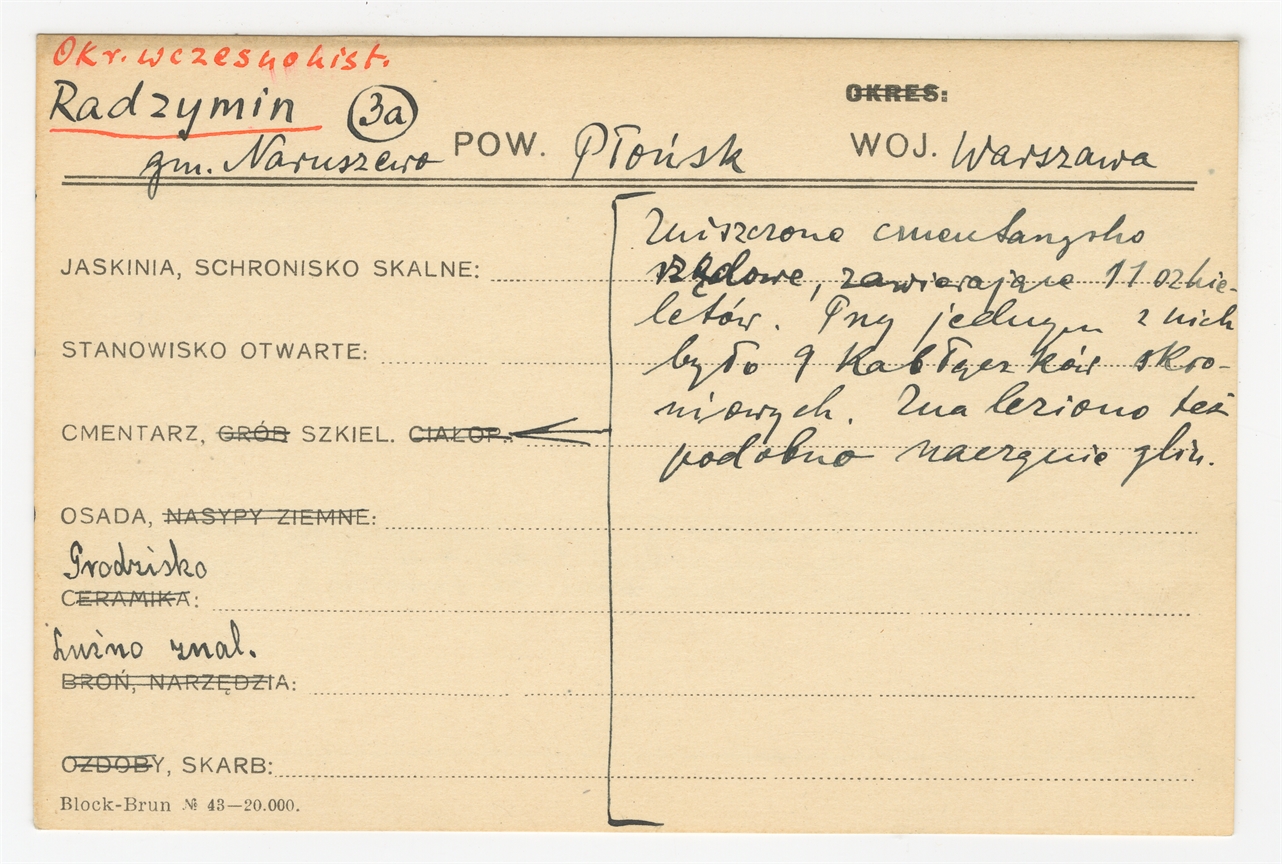 Okr. wczesnohist.
Radzymin (3a)
OKRES:
gm. Naruszewo POW. Płońsk WOJ. Warszawa
Zniszczone cmentarzysko
rzędowe, zawierające 11 szkie-
letów. Przy jednym z nich
było 9 kabłączków skro-
niowych. Znaleziono też
podobno naczynie glin.
JASKINIA, SCHRONISKO SKALNE:
STANOWISKO OTWARTE:
CMENTARZ, GRÓB SZKIEL. CIAŁOP.
OSADA, NASYPY ZIEMNE:
Grodzisko
CERAMIKA:
Luźno znal.
BROŃ, NARZĘDZIA:
OZDOBY, SKARB:
Block-Brun № 43—20.000.